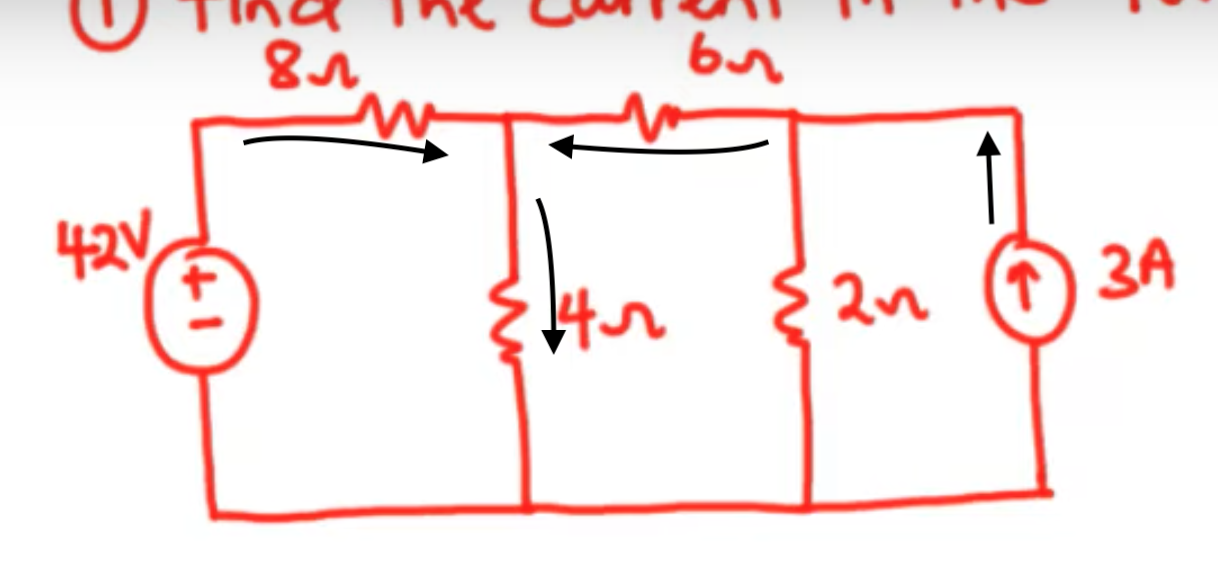 ① Find the current in the
8Ω 6Ω
42V + - 4Ω 2Ω 3A